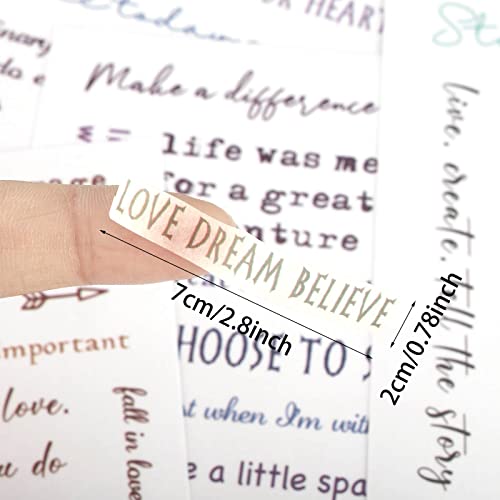 HEAR
Make a difference
life was me
for a great
LOVE DREAM BELIEVE
7cm/2.8inch
2cm/0.78inch
HOOSE TO
important
love.
u do
fall in love
when I'm with
e a little spa
live. create. tell the story